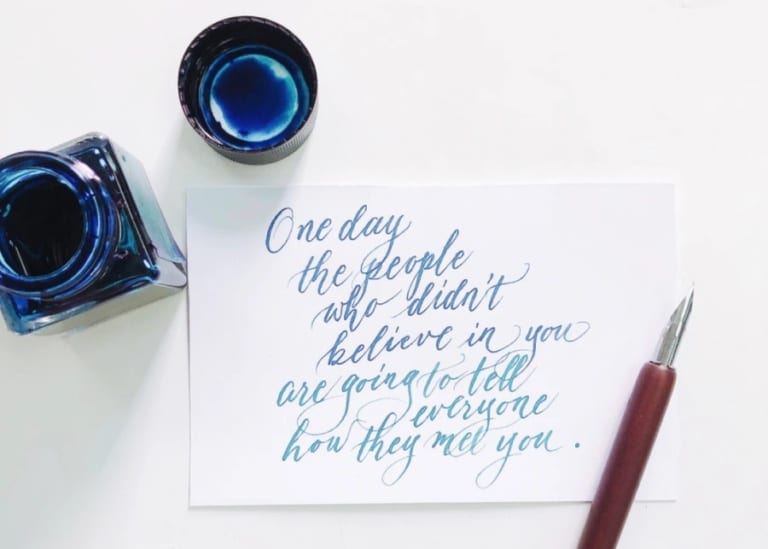 One day
the people
who didn't
believe in you
are going to tell
everyone
how they met you.